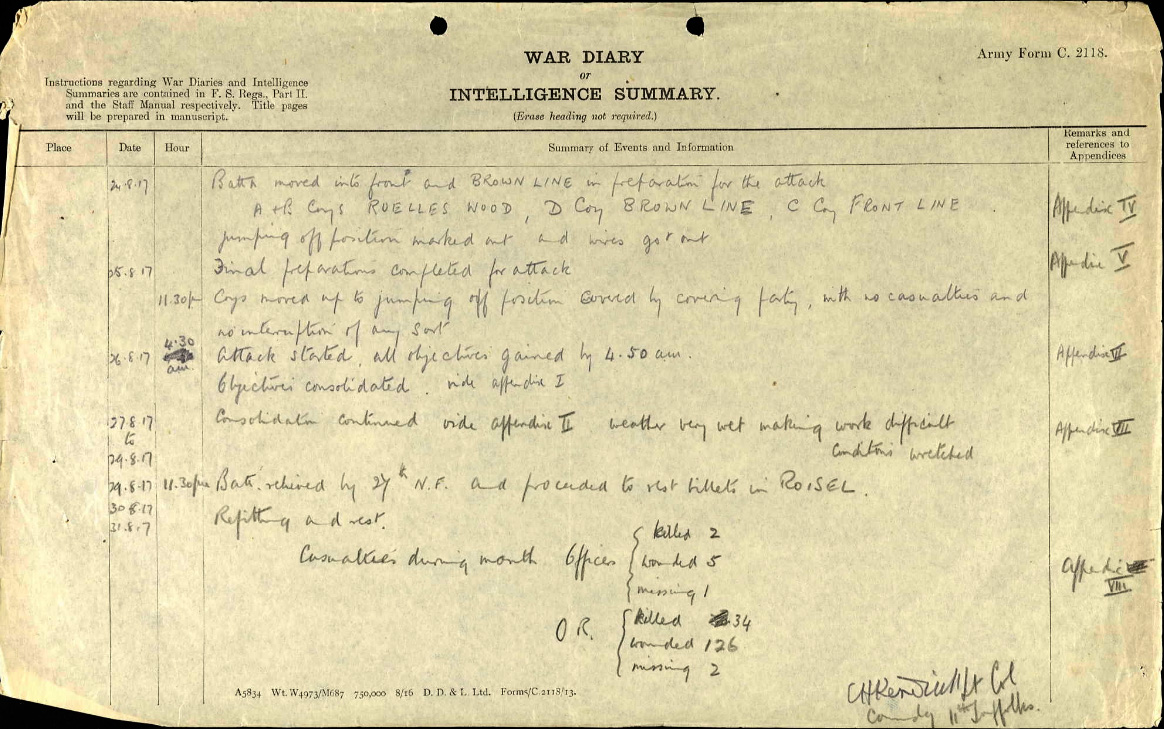 WAR DIARY
or
INTELLIGENCE SUMMARY.
(Erase heading not required.)
Army Form C. 2118.
Instructions regarding War Diaries and Intelligence
Summaries are contained in F. S. Regs., Part II.
and the Staff Manual respectively. Title pages
will be prepared in manuscript.
Place Date Hour Summary of Events and Information Remarks and
references to
Appendices
24.8.17 Battn moved into front and BROWN LINE in preparation for the attack
A + B Coys RUELLES WOOD, D Coy BROWN LINE, C Coy FRONT LINE Appendix IV
jumping off position marked out and wires got out
25.8.17 Final preparations completed for attack Appendix V
11.30pm Coys moved up to jumping off position covered by covering party, with no casualties and
no interruption of any sort
26.8.17 4.30 am. Attack started, all objectives gained by 4.50 am. Appendix VI
Objectives consolidated. vide appendix I
27.8.17 Consolidation continued vide appendix II weather very wet making work difficult Appendix VII
to
29.8.17 conditions wretched
29.8.17 11.30pm Batt. relieved by 27th N.F. and proceeded to rest billets in ROISEL.
30.8.17
31.8.17 Refitting and rest.
Casualties during month Officers killed 2
wounded 5
missing 1 Appendix VIII
O R. killed 34
wounded 126
missing 2
Lt Col
Comdg 11th Suffolks.
A5834 Wt. W4973/M687 750,000 8/16 D. D. & L. Ltd. Forms/C.2118/13.